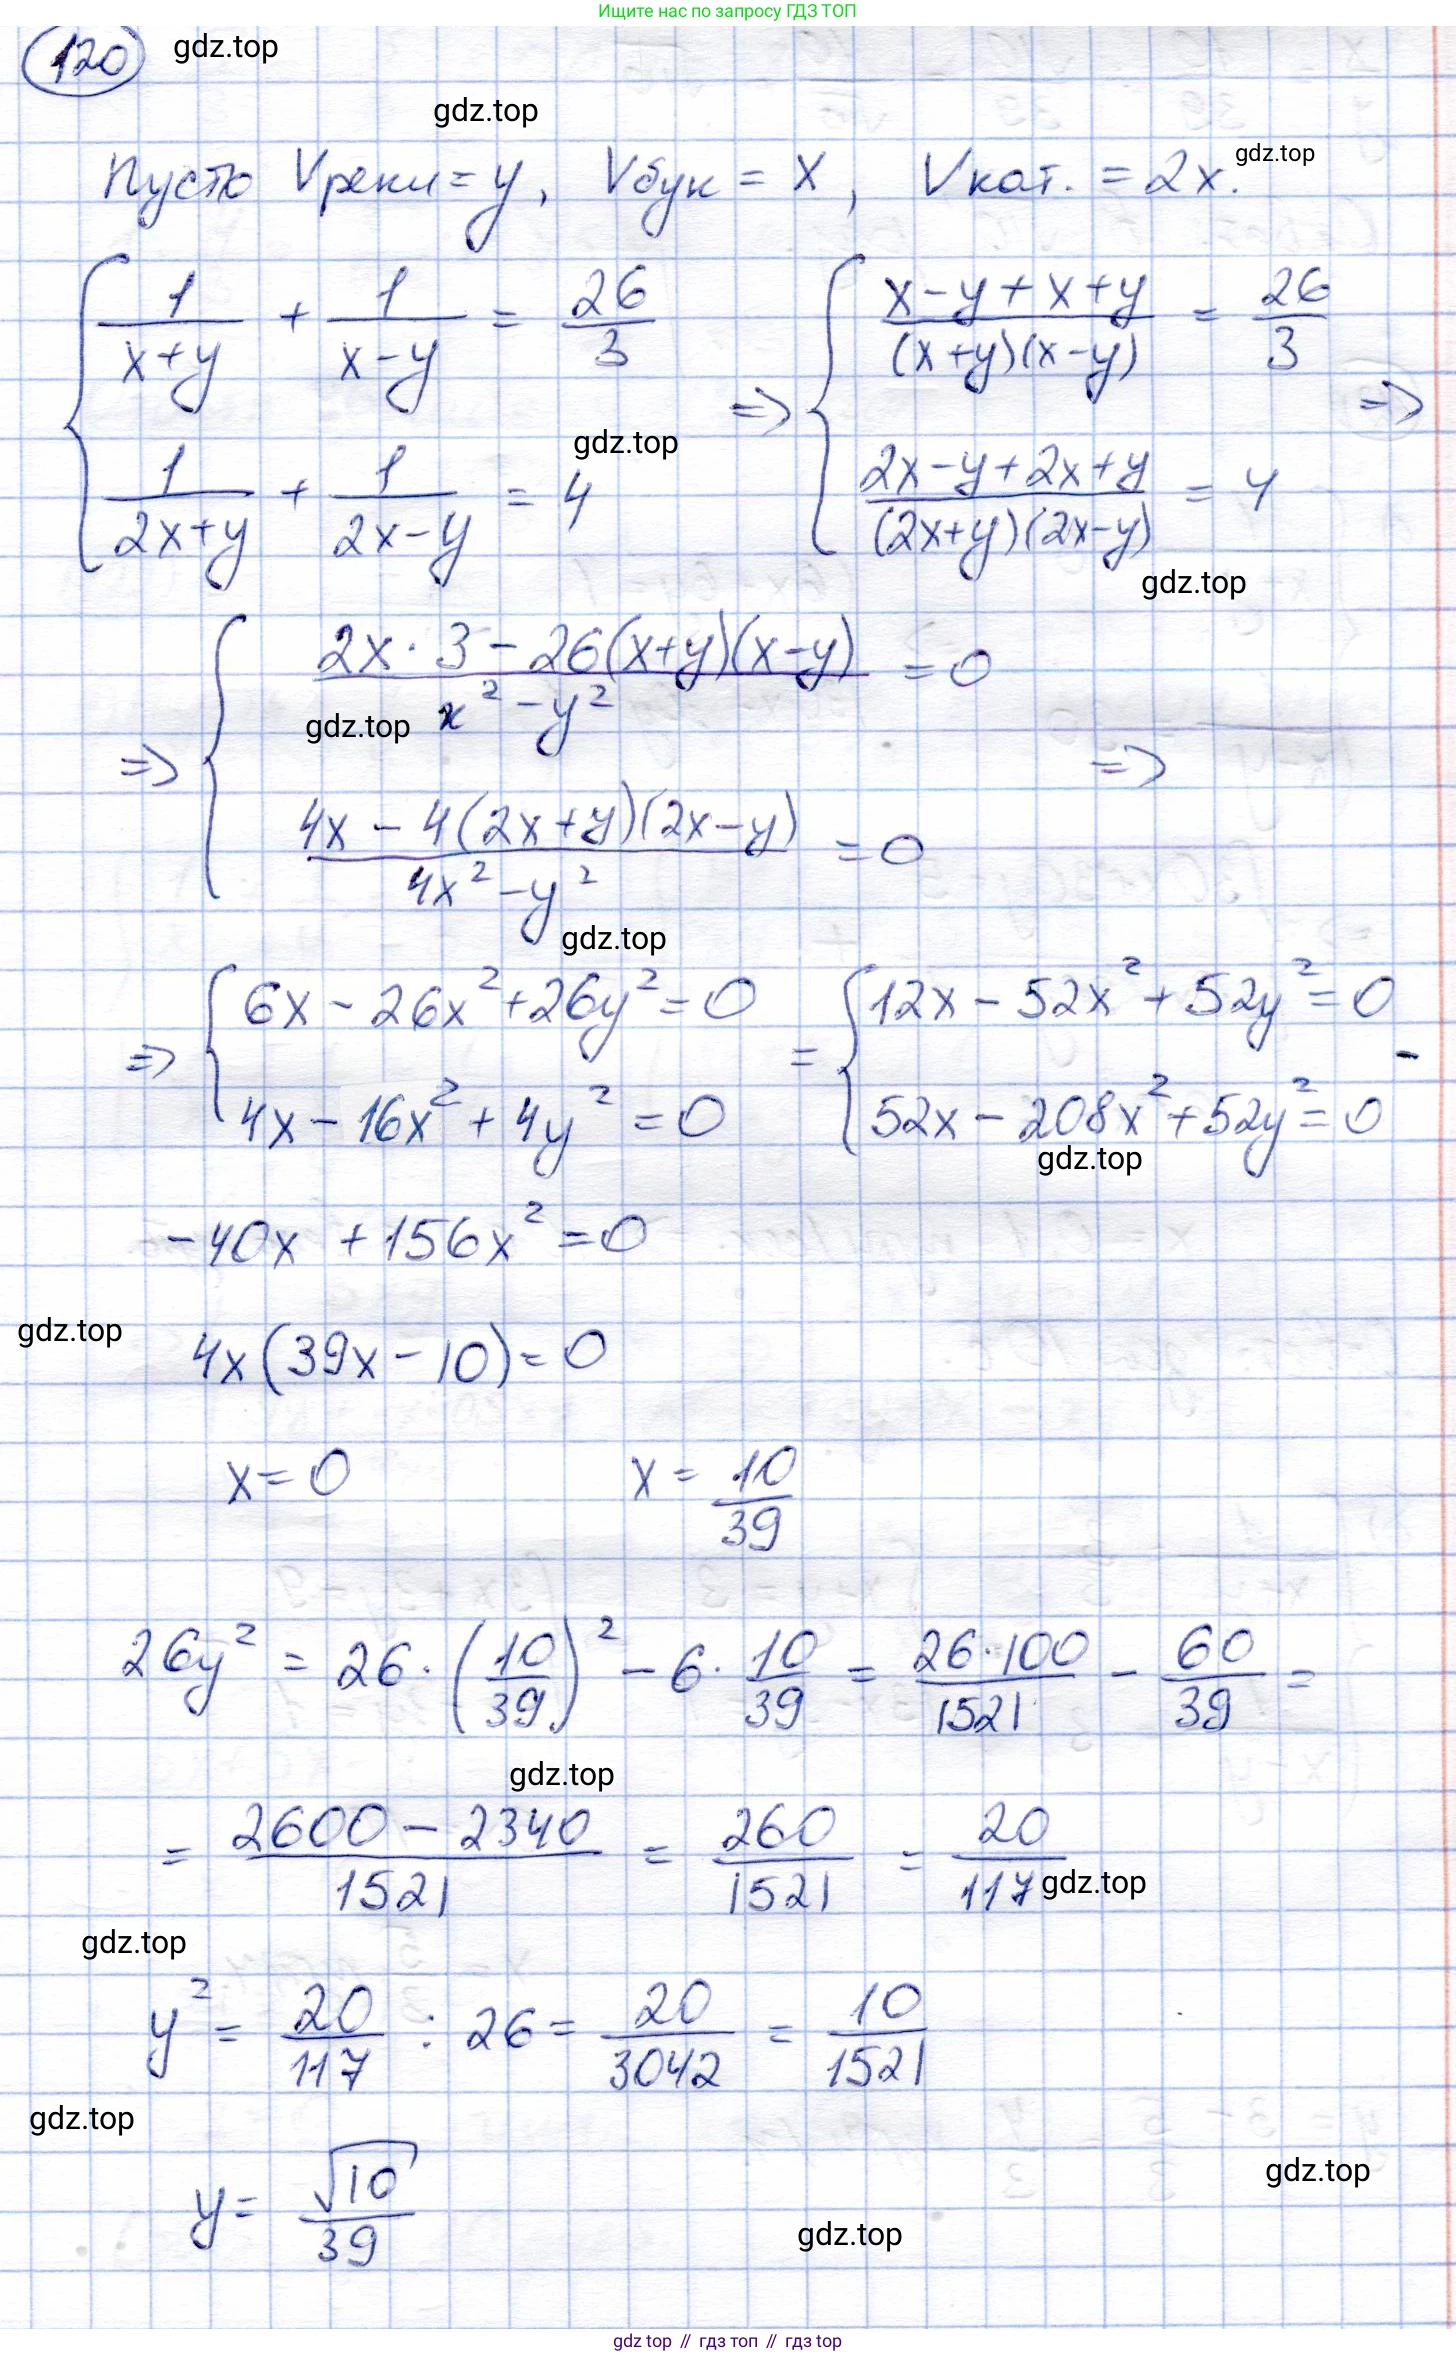 Ищите нас по запросу ГДЗ ТОП
120 gdz.top
gdz.top
Пусть Vреки = y, Vбук = x, Vкат. = 2x. gdz.top
{ 1/(x+y) + 1/(x-y) = 26/3 => { (x-y+x+y)/((x+y)(x-y)) = 26/3 =>
gdz.top
1/(2x+y) + 1/(2x-y) = 4 (2x-y+2x+y)/((2x+y)(2x-y)) = 4
gdz.top
=> { (2x·3-26(x+y)(x-y))/(x²-y²) = 0 =>
gdz.top
(4x-4(2x+y)(2x-y))/(4x²-y²) = 0
gdz.top
=> { 6x-26x²+26y²=0 = { 12x-52x²+52y²=0 -
4x-16x²+4y²=0 52x-208x²+52y²=0
gdz.top
-40x+156x²=0
gdz.top
4x(39x-10)=0
x=0 x=10/39
26y² = 26·(10/39)² - 6·10/39 = 26·100/1521 - 60/39 =
gdz.top
= (2600-2340)/1521 = 260/1521 = 20/117
gdz.top
gdz.top
y² = 20/117 : 26 = 20/3042 = 10/1521
gdz.top
gdz.top
y = √10/39
gdz.top
gdz top // гдз топ // гдз top